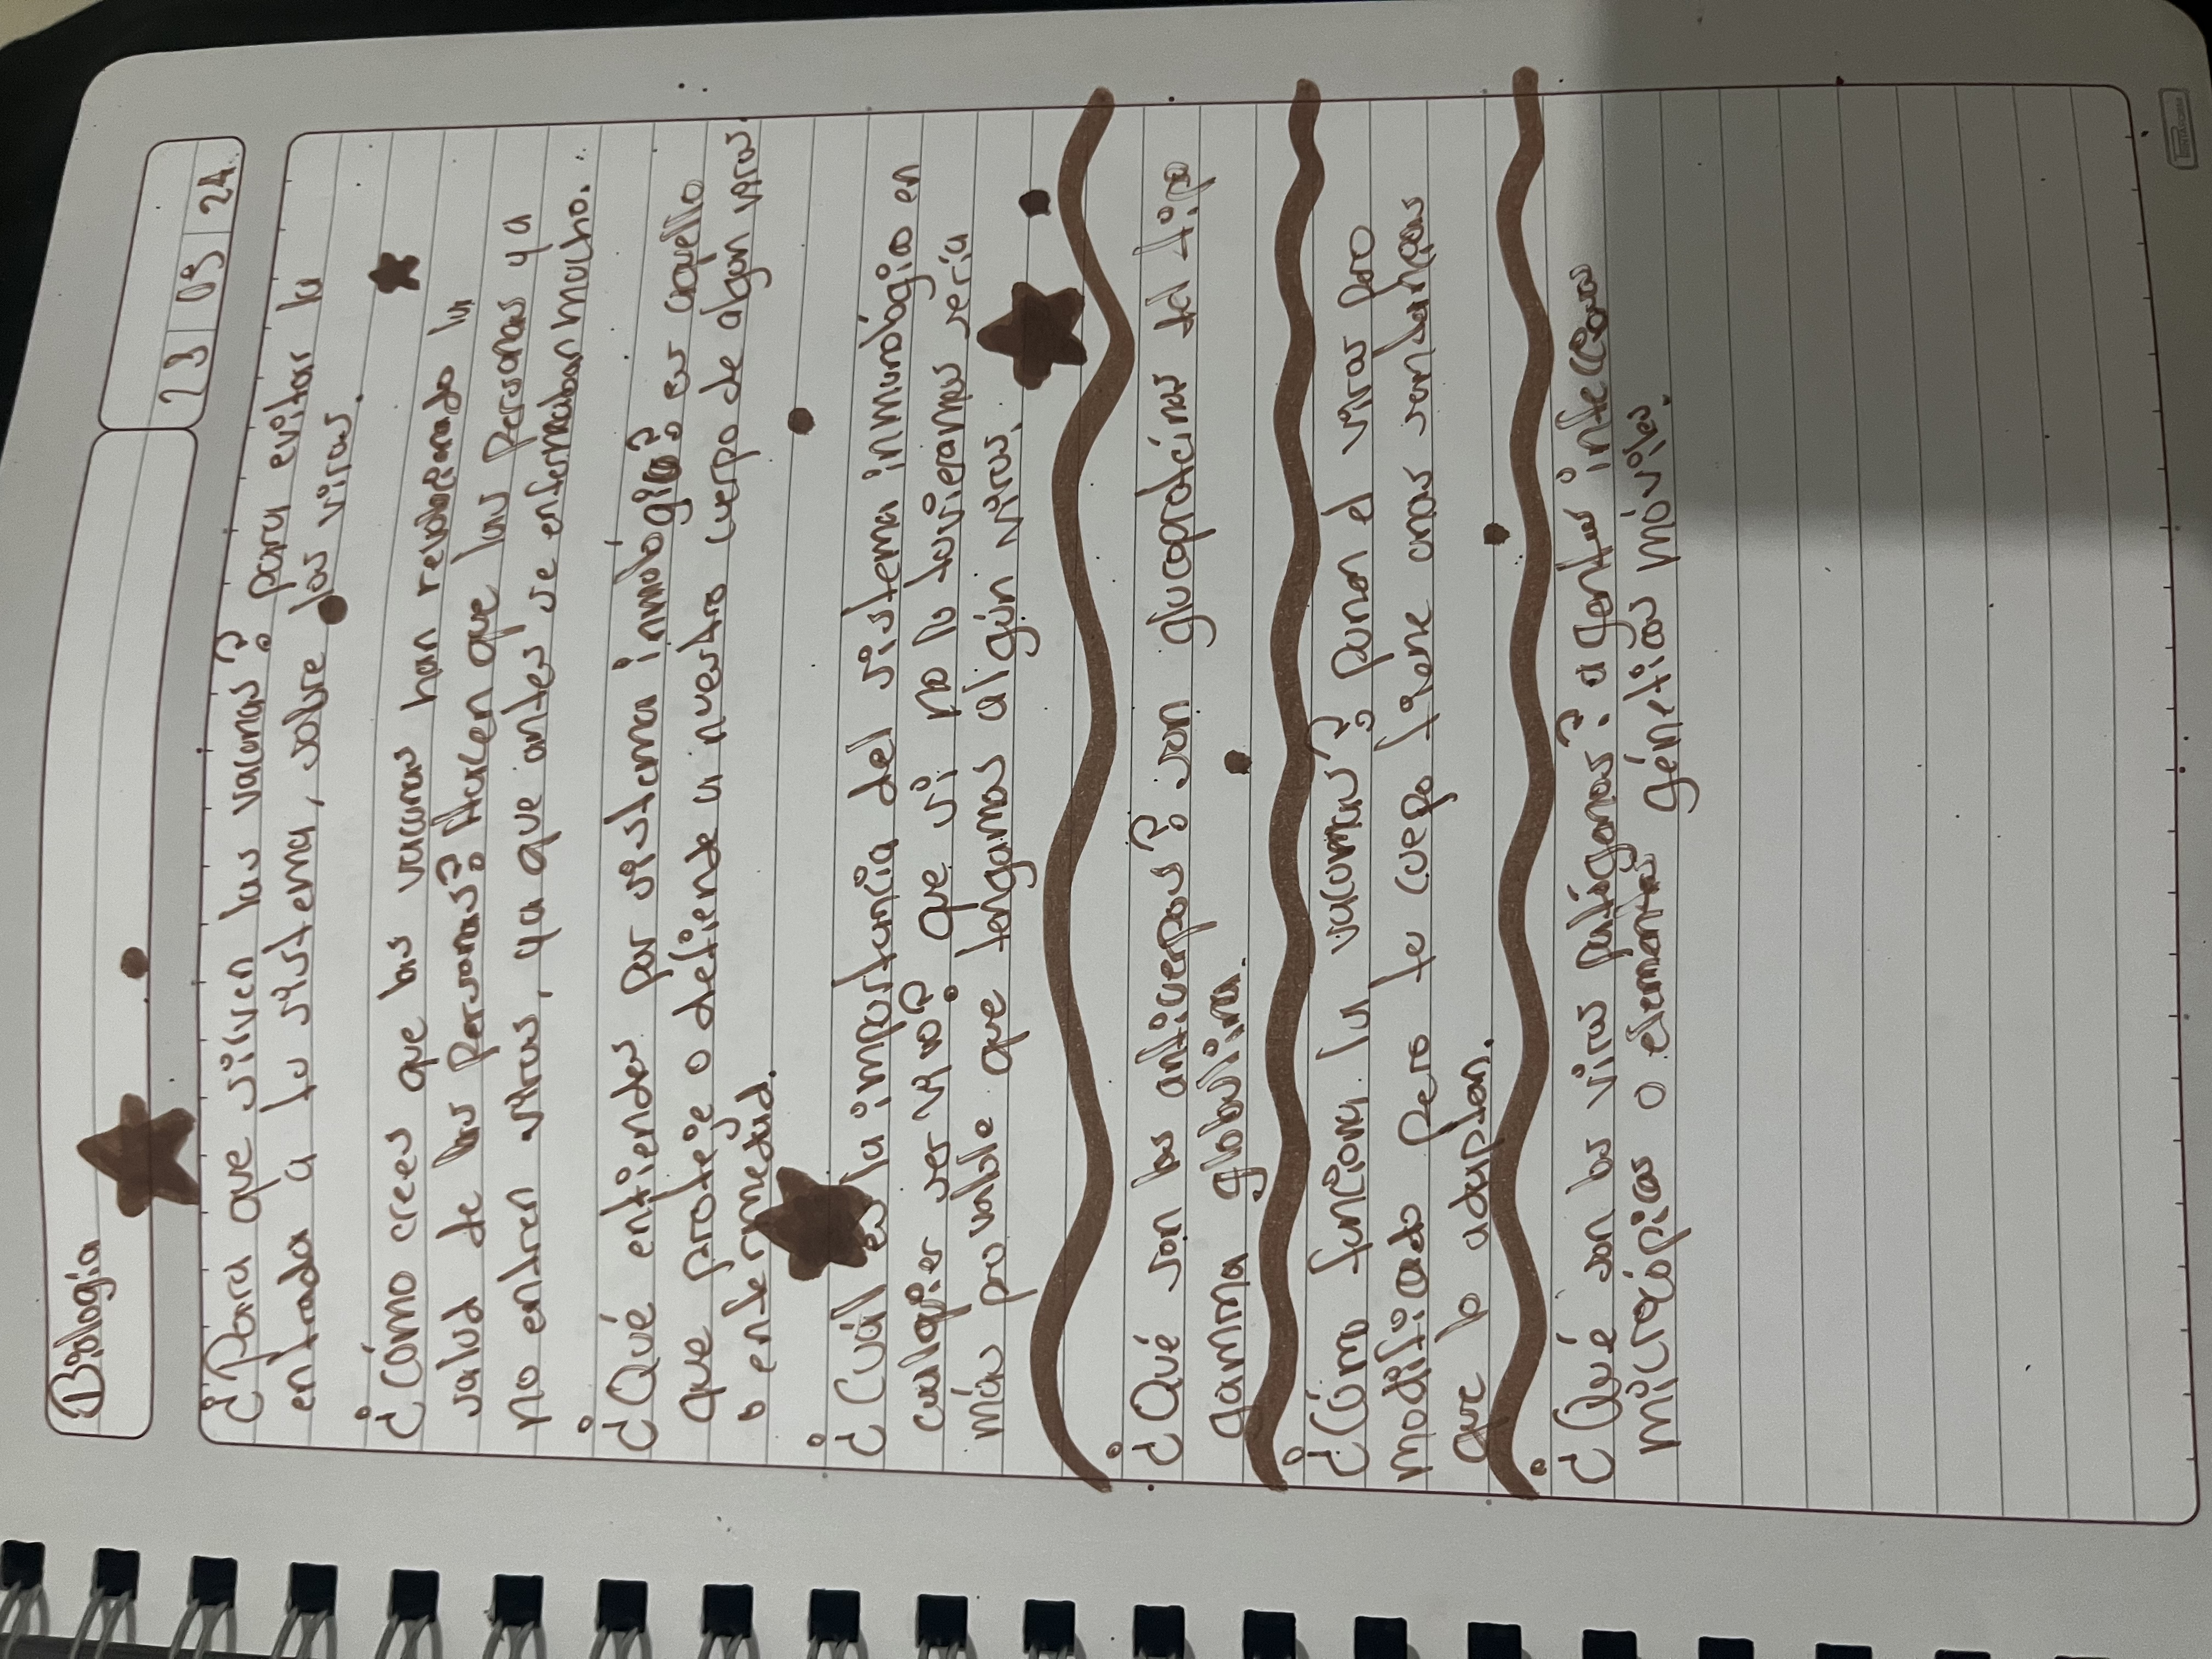 Biología
23 05 24
¿Para que sirven las vacunas? para evitar la
entrada a tu sistema, sobre los virus.
¿Cómo crees que las vacunas han revolucionado la
salud de las personas? Hacen que las personas ya
no entren virus, ya que antes se enfermaban mucho.
¿Qué entiendes por sistema inmológico? es aquello
que proteje o defiende a nuestro cuerpo de algun virus
o enfermedad.
¿Cuál es la importancia del sistema inmunológico en
cualquier ser vivo? que si no lo tuvieramos sería
más provable que tengamos algún virus.
¿Qué son los anticuerpos? son glucoproteínas del tipo
gamma globulina.
¿Cómo funciona la vacuna? ponen el virus pero
modificado pero te cuepo tiene unas ventanas
que lo adaptan.
¿Qué son los virus patógenos? agentes infecciosos
microscópicos o elementos géneticos móviles.